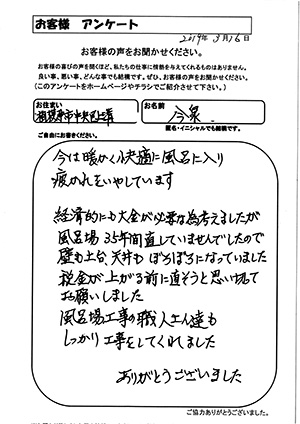 お客様 アンケート
2019年 3月16日
お客様の声をお聞かせください。
お客様の喜びの声を聞くほど、私たちの仕事に情熱を与えてくれるものはありません。
良い事、悪い事、どんな事でも結構です。ぜひ、お客様の声をお聞かせください。
(このアンケートをホームページやチラシでご紹介させて下さい。)
お住まい
相模原市中央区上溝
お名前
今泉
匿名・イニシャルでも結構です。
ご自由にお書きください。
今は暖かく快適に風呂に入り
疲かれをいやしています
経済的にも大金が必要な為考えましたが
風呂場35年間直していませんでしたので
壁も土台、天井も ぼろぼろになっていました
税金が上がる前に直そうと思い切って
お願いしました
風呂場工事の職人さん達も
しっかり工事をしてくれました
ありがとうございました
ご協力ありがとうございました。